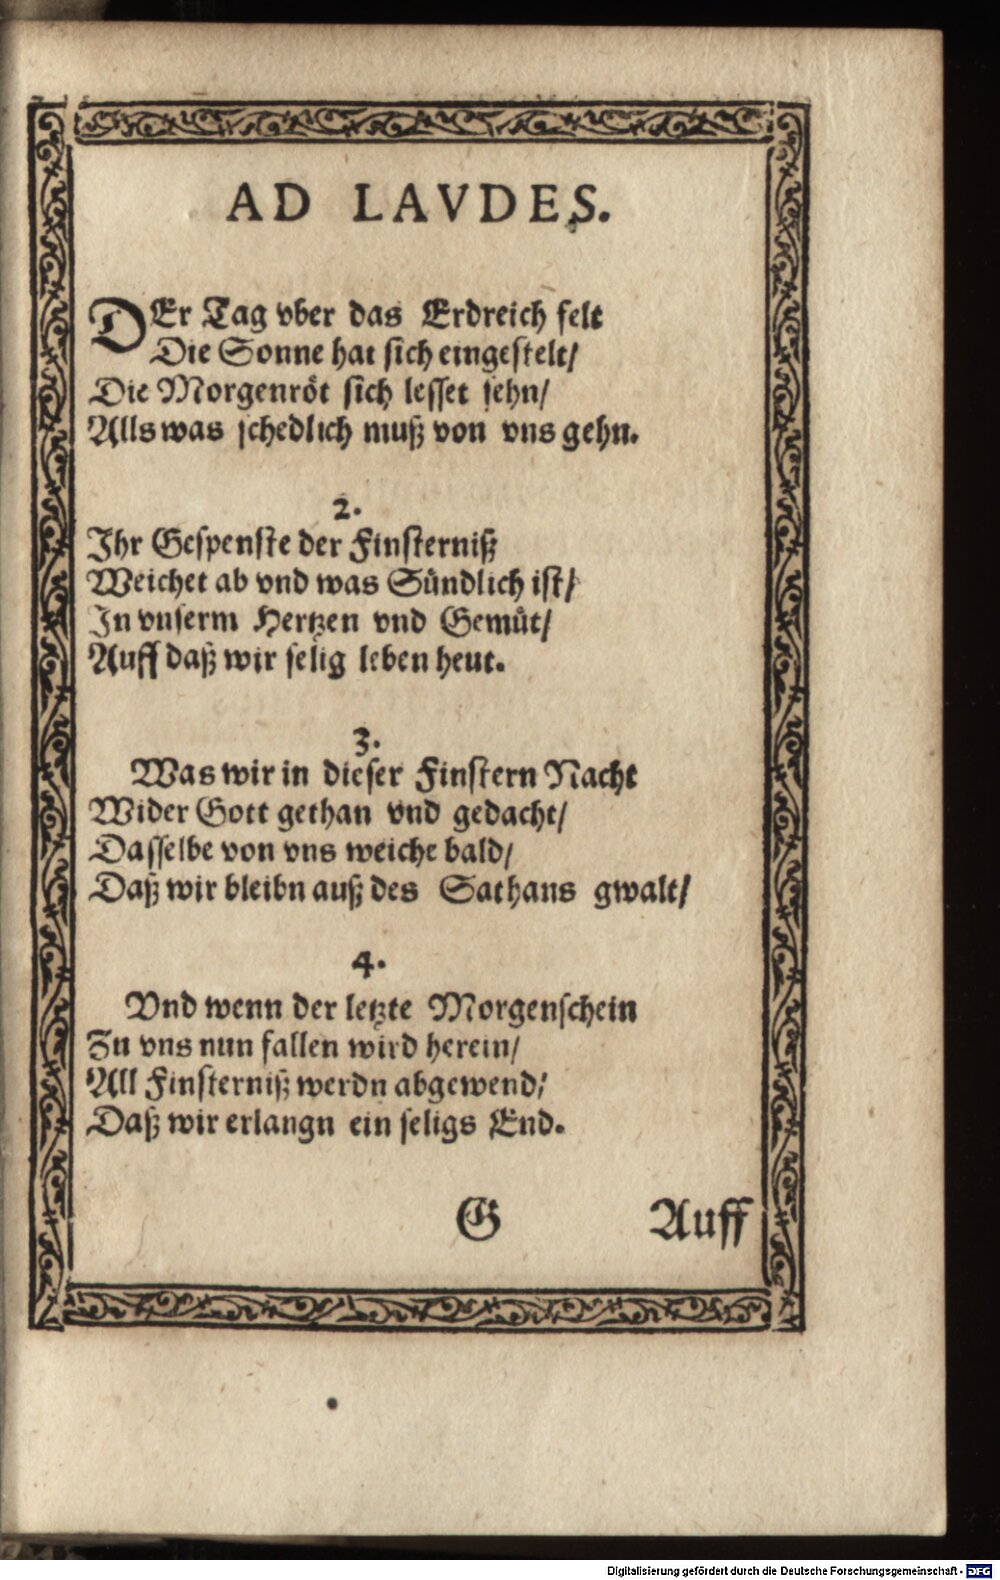 AD LAVDES.
DEr Tag vber das Erdreich felt
Die Sonne hat sich eingestelt/
Die Morgenröt sich lesset sehn/
Alls was schedlich muß von vns gehn.
2.
Ihr Gespenste der Finsterniß
Weichet ab vnd was Sündlich ist/
In vnserm Hertzen vnd Gemüt/
Auff daß wir selig leben heut.
3.
Was wir in dieser Finstern Nacht
Wider Gott gethan vnd gedacht/
Dasselbe von vns weiche bald/
Daß wir bleibn auß des Sathans gwalt/
4.
Vnd wenn der letzte Morgenschein
Zu vns nun fallen wird herein/
All Finsterniß werdn abgewend/
Daß wir erlangn ein seligs End.
G Auff
Digitalisierung gefördert durch die Deutsche Forschungsgemeinschaft - DFG